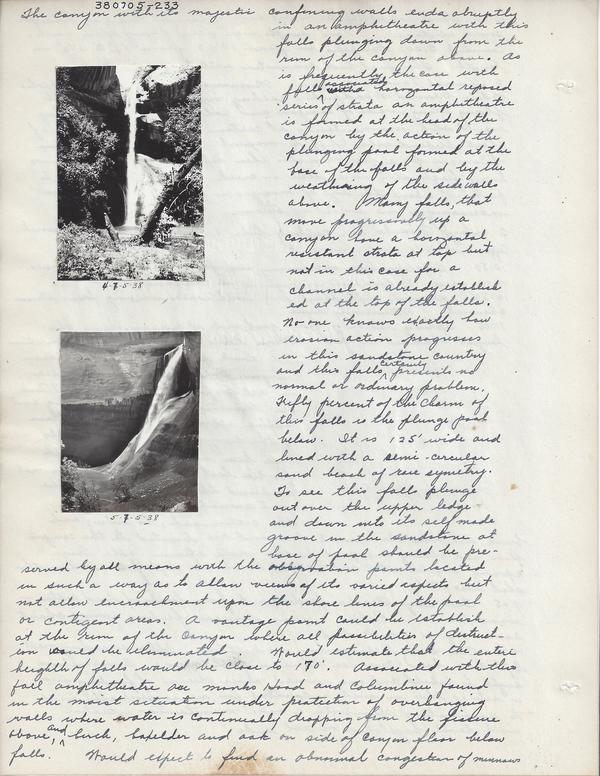 380705-233
The canyon with its majestic confining walls ends abruptly
in an amphitheatre with this
falls plunging down from the
rim of the canyon above. As
is frequently the case with
falls associated with a horizontal reposed
series of strata an amphitheatre
is formed at the head of the
canyon by the action of the
plunging pool formed at the
base of the falls and by the
weathering of the sidewalls
above. Many falls, that
move progressively up a
canyon have a horizontal
resistant strata at top but
not in this case for a
channel is already establish
ed at the top of the falls.
No one knows exactly how
erosion action progresses
in this sandstone country
and this falls certainly presents no
normal or ordinary problem.
Fifty percent of the charm of
this falls is the plunge pool
below. It is 125' wide and
lined with a semi-circular
sand beach of rare symetry.
To see this falls plunge
out over the upper ledge
and down into its self made
groove in the sandstone at
base of pool should be pre-
served by all means with the observation points located
in such a way as to allow views of its varied aspects but
not allow encroachment upon the shore lines of the pool
or contigent areas. A vantage point could be establish
at the rim of the Canyon where all possibilities of destruct-
ion would be eliminated. Would estimate that the entire
heighth of falls would be close to 170'. Associated with this
fall amphitheatre are monks Hood and Columbine found
in the moist situation under protection of overhanging
walls where water is continually dropping from the fissure
above, and birch, boxelder and oak on side of canyon floor below
falls. Would expect to find an abnormal congestion of minnows
4-7-5-38
5-7-5-38